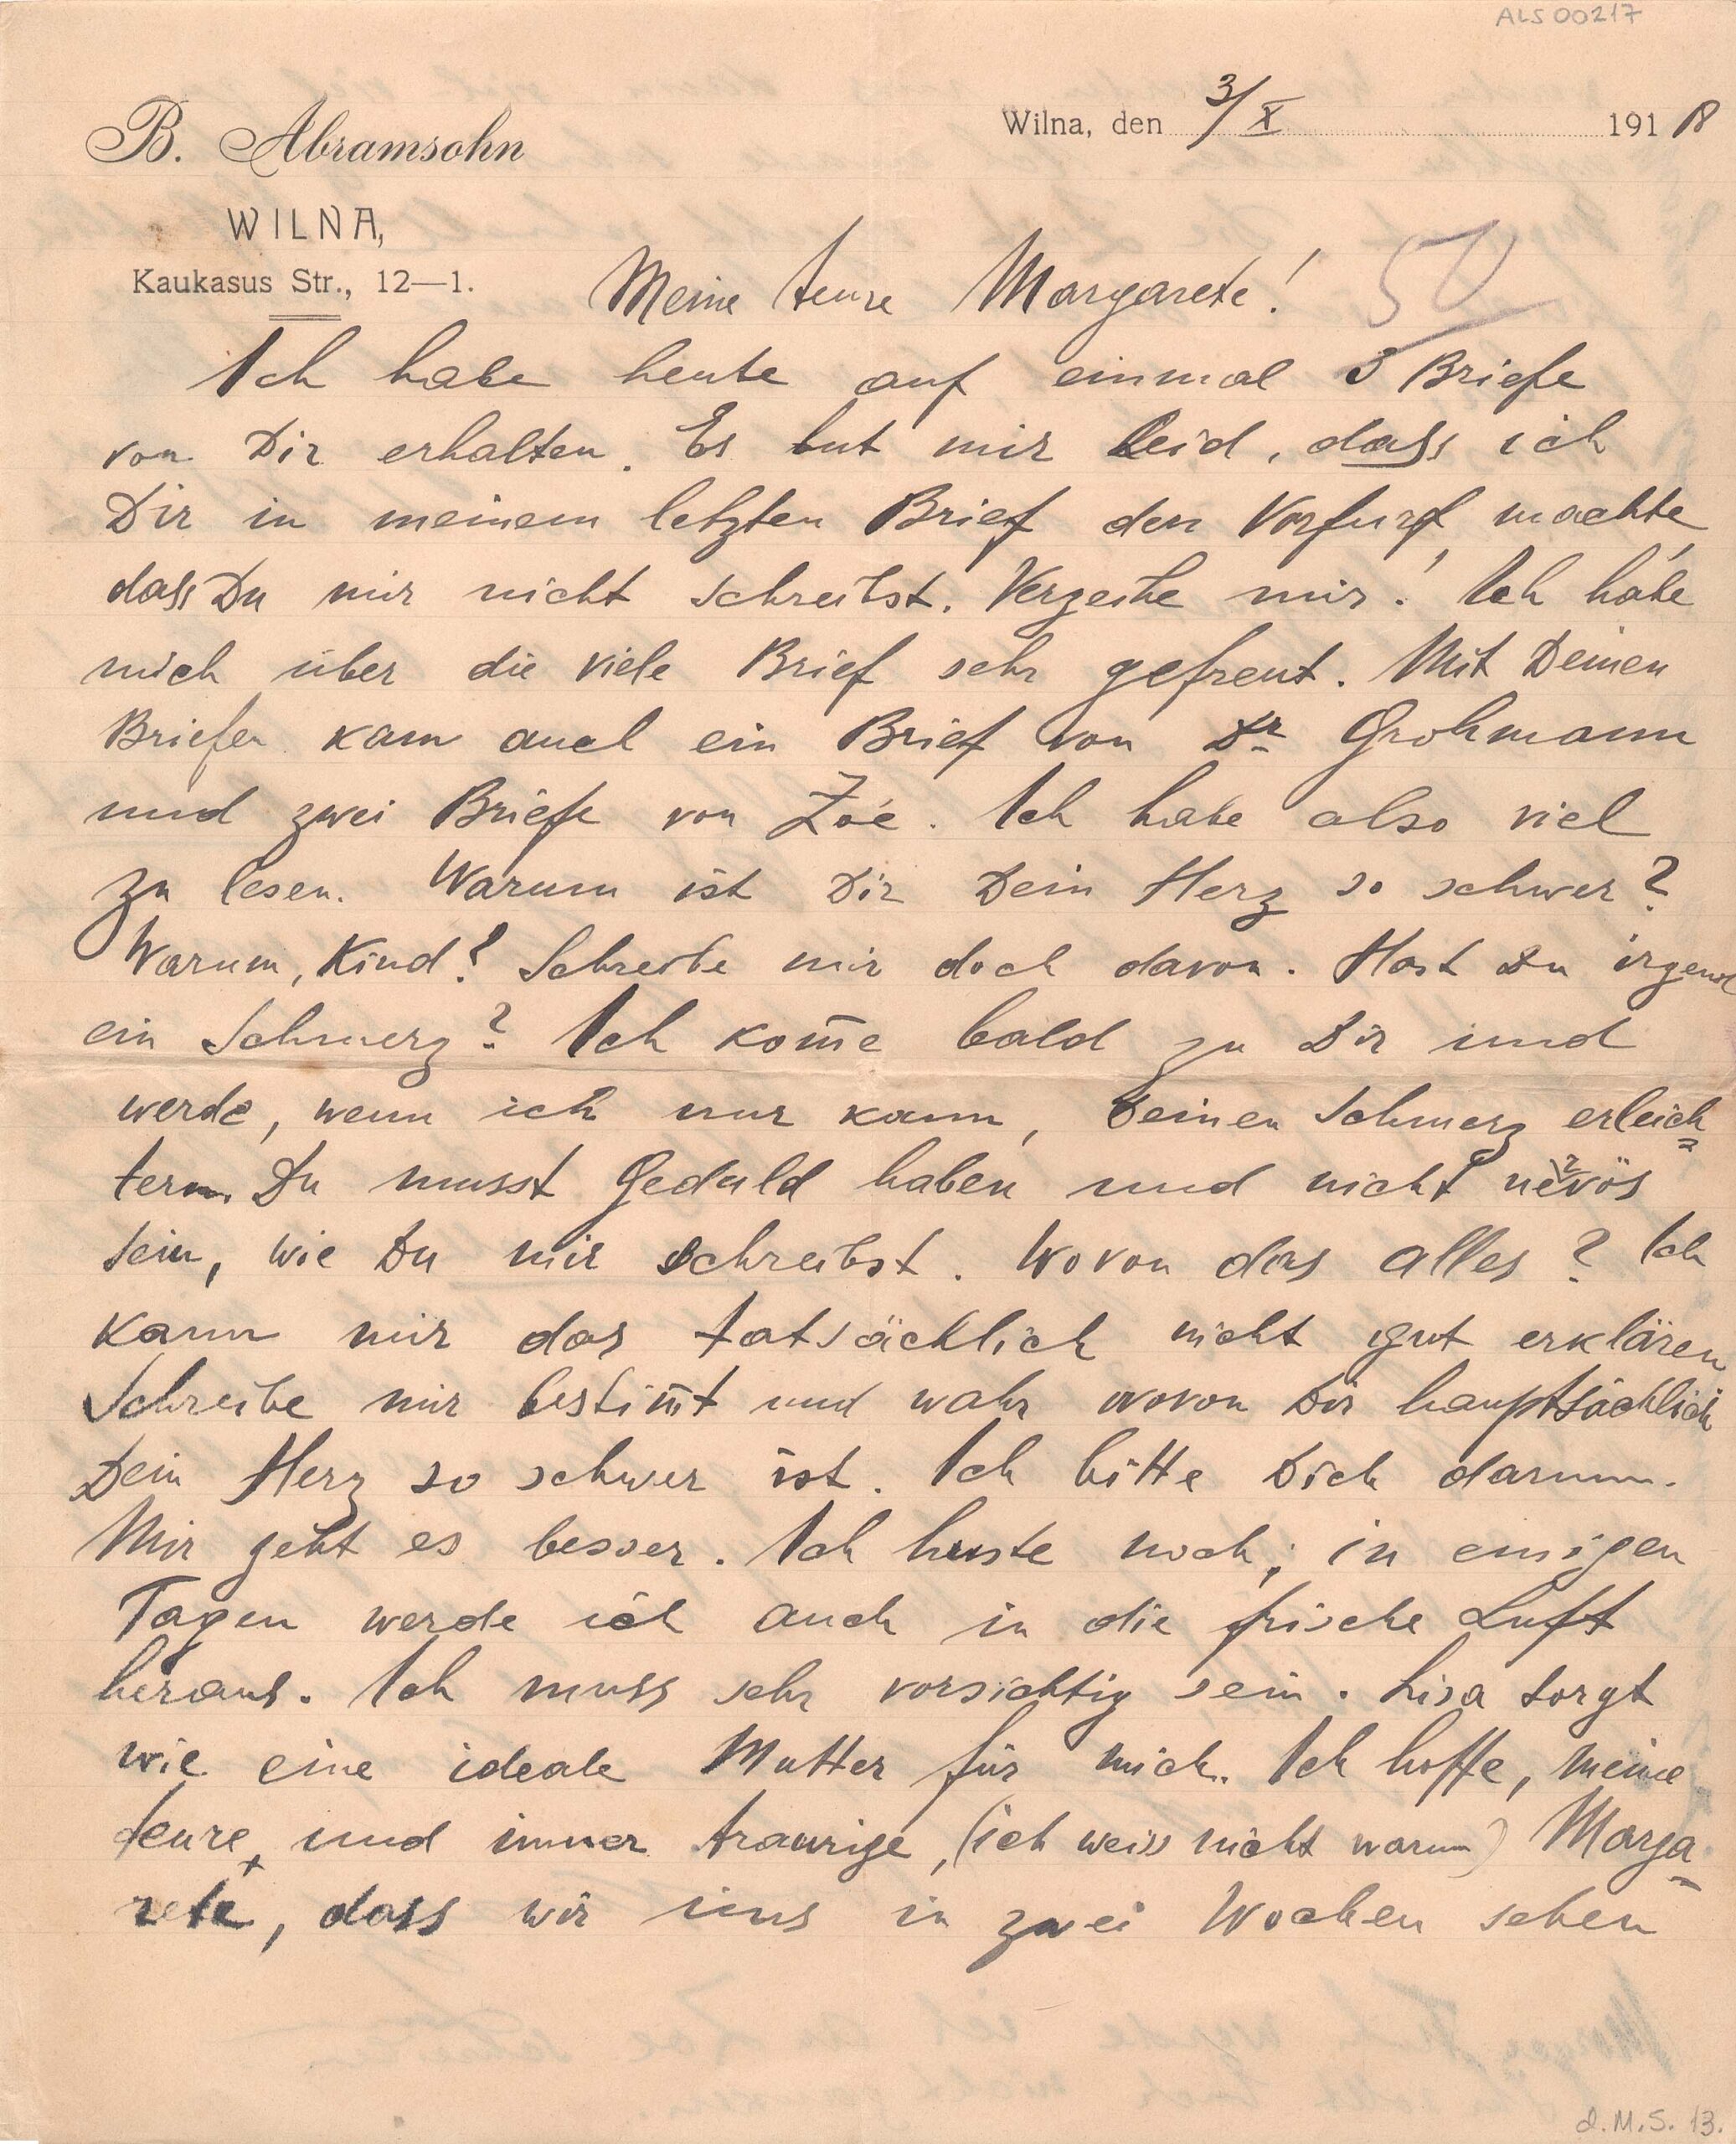 ALS 00217
B. Abramsohn
Wilna, den 3/X 1918
WILNA,
Kaukasus Str., 12—1.
Meine teure Margarete!
Ich habe heute auf einmal 3 Briefe
von Dir erhalten. Es tut mir leid, dass ich
Dir in meinem letzten Brief den Vorfurf machte,
dass Du mir nicht schreibst. Verzeihe mir! Ich habe
mich über die viele Brief sehr gefreut. Mit Deinen
Briefen kam auch ein Brief von Dr Grohmann
und zwei Briefe von Zoé. Ich habe also viel
zu lesen. Warum ist Dir Dein Herz so schwer?
Warum, Kind? Schreibe mir doch davon. Hast Du irgend
ein Schmerz? Ich kom̅e bald zu Dir und
werde, wenn ich nur kann, Deinen Schmerz erleich=
tern. Du musst Geduld haben und nicht nervös
sein, wie Du mir schreibst. Wovon das alles? Ich
kann mir das tatsächlich nicht gut erklären
Schreibe mir bestim̅t und wahr wovon Dir hauptsächlich
Dein Herz so schwer ist. Ich bitte Dich darum.
Mir geht es besser. Ich huste noch; in einigen
Tagen werde ich auch in die frische Luft
heraus. Ich muss sehr vorsichtig sein. Lisa sorgt
wie eine ideale Mutter für mich. Ich hoffe, meine
teure, und immer traurige, (ich weiss nicht warum) Marga=
rete, dass wir uns in zwei Wochen sehen
d. M. S. 13.